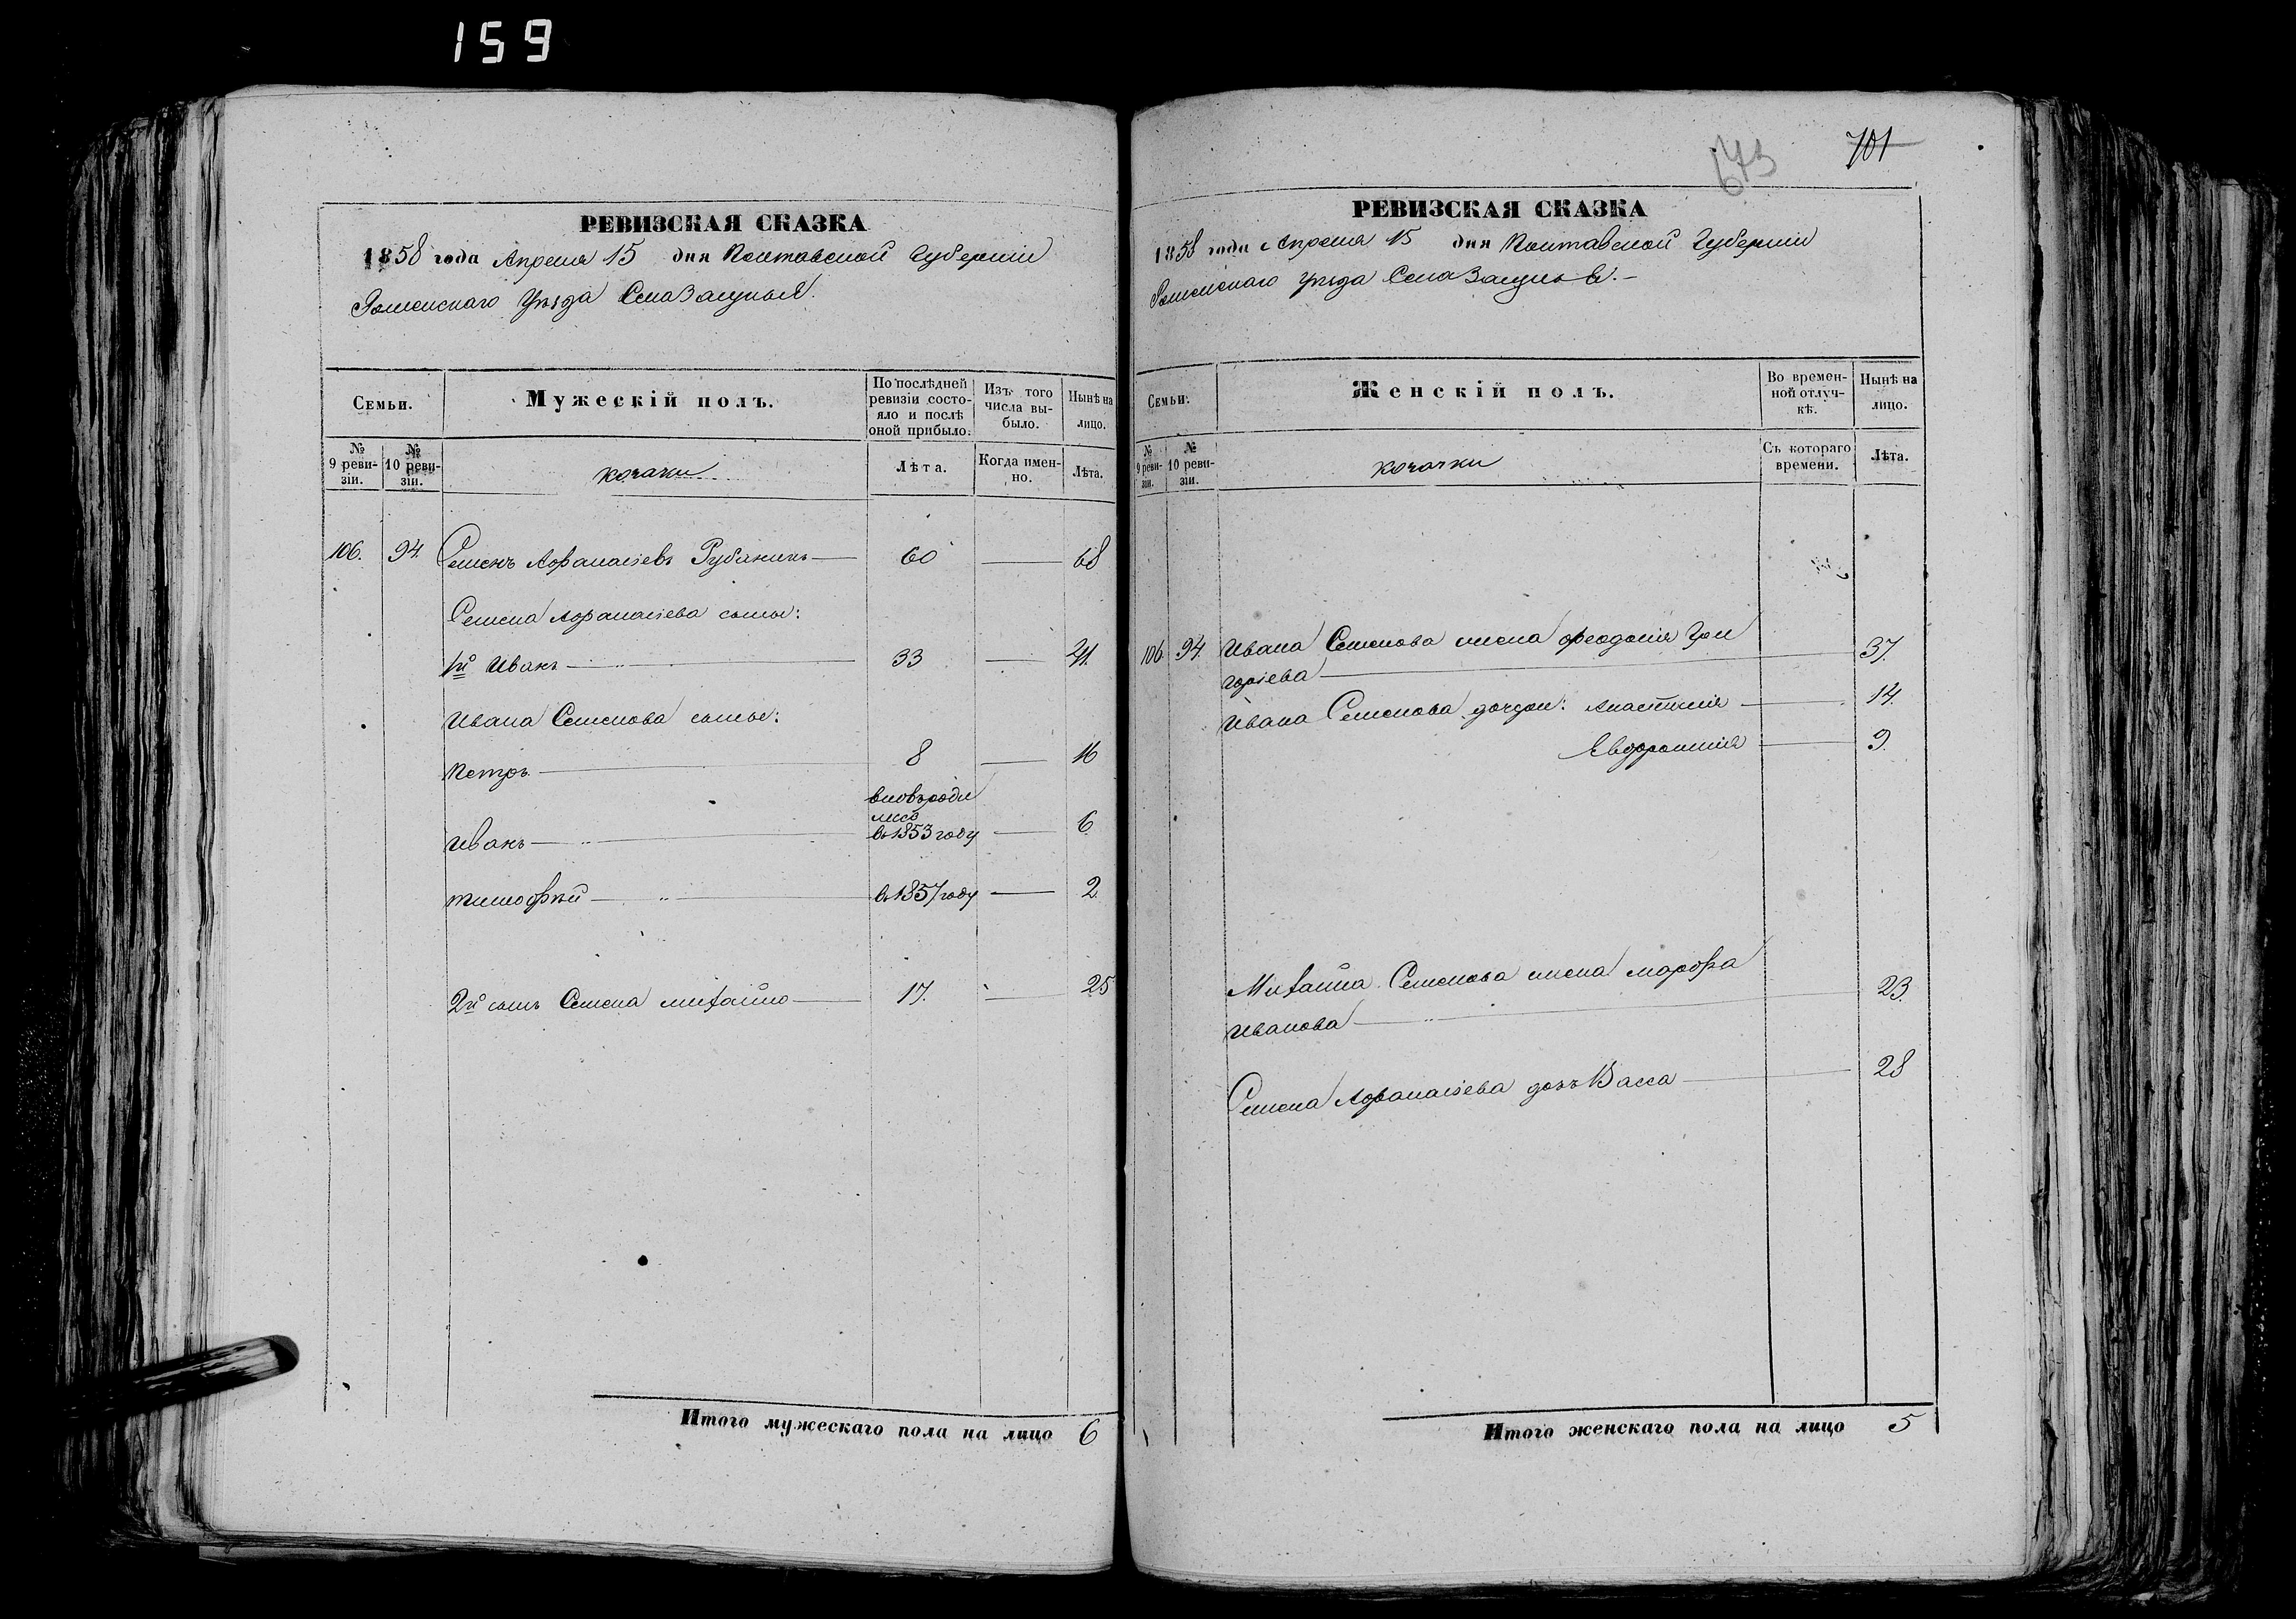 159
РЕВИЗСКАЯ СКАЗКА
1858 года Апреля 15 дня Полтавской Губерніи
Роменскаго Уѣзда Села
Семьи.
Мужескій полъ.
По послѣдней ревизіи состо-
яло и послѣ
оной прибыло.
Изъ того
числа вы-
было.
Нынѣ на
лицо.
№
9 реви-
зіи.
№
10 реви-
зіи.
козаки
Лѣта.
Когда имен-
но.
Лѣта.
106. 94. Семенъ Афанасіевъ 60 68
Семена Афанасіева сыны:
1й Иванъ 33 41.
Ивана Семенова сыны:
Петръ 8 16
вновьроди
лися
Иванъ в 1853 году 6
тимофѣй в 1857 году 2
2й сынъ Семена михайло 17. 25
Итого мужескаго пола на лицо 6
673
701
РЕВИЗСКАЯ СКАЗКА
1858 года Апреля 15 дня Полтавской Губерніи
Роменскаго уѣзда Села
Семьи.
Женскій полъ.
Во времен-
ной отлуч-
кѣ.
Нынѣ на
лицо.
№
9 реви-
зіи.
№
10 реви-
зіи.
козачки
Съ котораго
времени.
Лѣта.
106 94. Ивана Семенова жена феодосія Гри
горіева 37.
Ивана Семенова дочери: Анастасія 14.
Евфросинія 9.
Михайла Семенова жена марфа
Иванова 23.
Семена Афанасіева дочь Васса 28
Итого женскаго пола на лицо 5